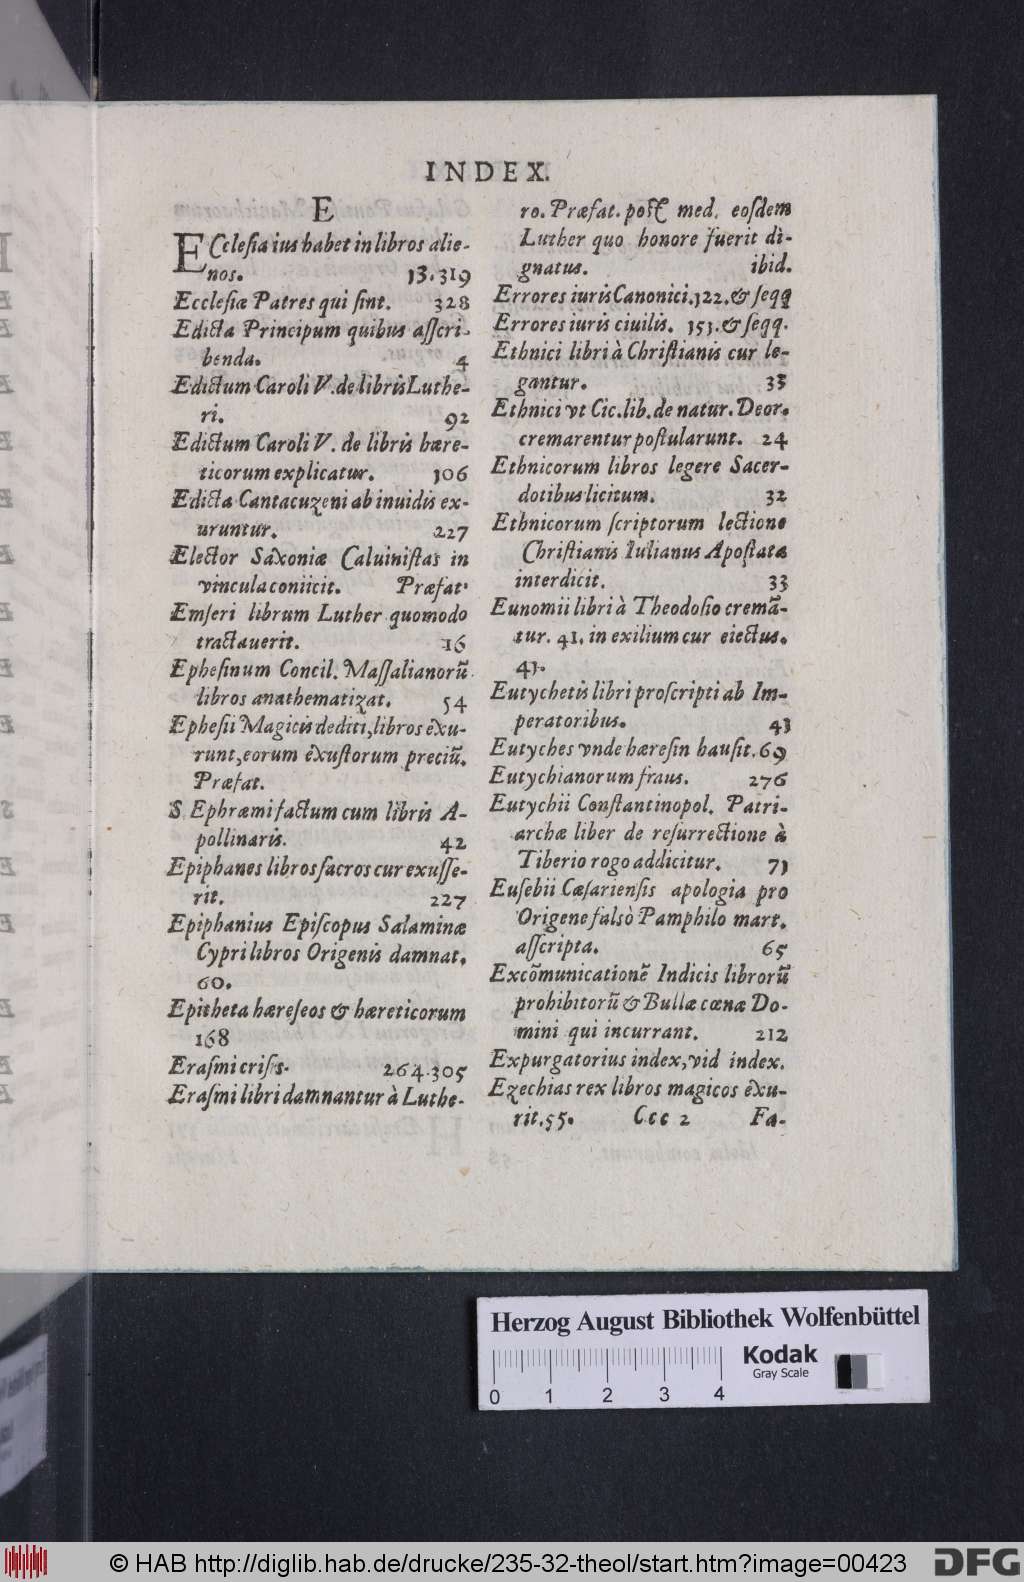 INDEX.
E
ECcleſia ius habet in libros alie-
nos. 13. 319
Eccleſiæ Patres qui ſint. 328
Edicta Principum quibus aſſcri-
benda. 4
Edictum Caroli V. de libris Luthe-
ri. 92
Edictum Caroli V. de libris hære-
ticorum explicatur. 106
Edicta Cantacuzeni ab inuidis ex-
uruntur. 227
Elector Saxoniæ Caluiniſtas in
vincula coniicit. Præfat.
Emſeri librum Luther quomodo
tractauerit. 16
Epheſinum Concil. Maſſalianorũ
libros anathematizat. 54
Epheſii Magicis dediti, libros exu-
runt, eorum exuſtorum preciũ.
Præfat.
S. Ephræmi factum cum libris A-
pollinaris. 42
Epiphanes libros ſacros cur exuſſe-
rit. 227
Epiphanius Epiſcopus Salaminæ
Cypri libros Origenis damnat.
60.
Epitheta hæreſeos & hæreticorum
168
Eraſmi criſis. 264. 305
Eraſmi libri damnantur à Luthe-
ro. Præfat. poſt med. eoſdem
Luther quo honore fuerit di-
gnatus. ibid.
Errores iuris Canonici. 122. & ſeqq
Errores iuris ciuilis. 151. & ſeqq.
Ethnici libri à Chriſtianis cur le-
gantur. 33
Ethnici vt Cic. lib. de natur. Deor.
cremarentur poſtularunt. 24
Ethnicorum libros legere Sacer-
dotibus licitum. 32
Ethnicorum ſcriptorum lectione
Chriſtianis Iulianus Apoſtata
interdicit. 33
Eunomii libri à Theodoſio cremã-
tur. 41. in exilium cur eiectus.
41.
Eutychetis libri proſcripti ab Im-
peratoribus. 43
Eutyches vnde hæreſin hauſit. 69
Eutychianorum fraus. 276
Eutychii Conſtantinopol. Patri-
archæ liber de reſurrectione à
Tiberio rogo addicitur. 71
Euſebii Cæſarienſis apologia pro
Origene falsò Pamphilo mart.
aſſcripta. 65
Excõmunicationẽ Indicis librorũ
prohibitorũ & Bullæ cœnæ Do-
mini qui incurrant. 212
Expurgatorius index, vid index.
Ezechias rex libros magicos exu-
rit. 55. Ccc 2 Fa-
Herzog August Bibliothek Wolfenbüttel
Kodak
Gray Scale
0 1 2 3 4
© HAB http://diglib.hab.de/drucke/235-32-theol/start.htm?image=00423
DFG